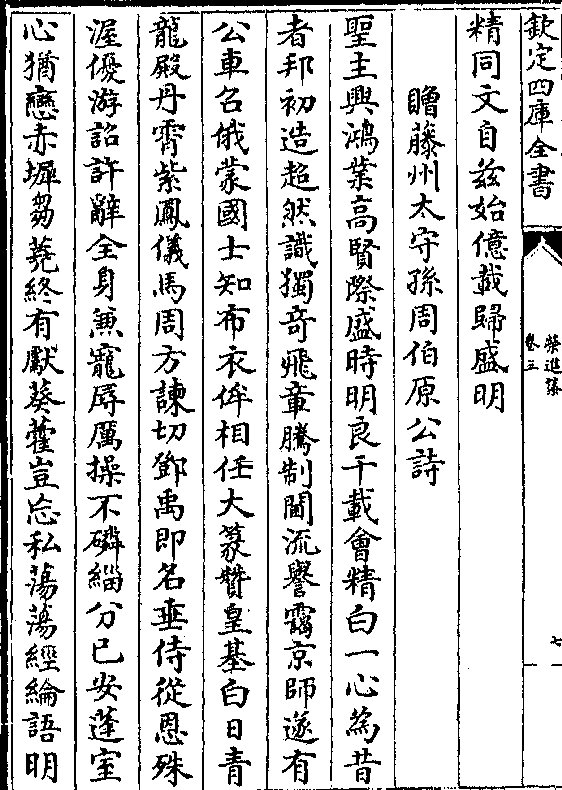 欽定四庫全書
榮進集
卷三
七
精同文自兹始億載歸盛明
贈藤州太守孫周伯原公詩
聖主興鴻業高賢際盛時明良千載會精白一心為昔
者邦初造超然識獨竒飛章騰制閫流譽靄京師遂有
公車召俄蒙國士知布衣侔相任大篆贊皇基白日青
龍殿丹霄紫鳳儀馬周方諫切鄧禹即名垂侍從恩殊
渥優游詔許辭全身兼寵辱厲操不磷緇分已安蓬室
心猶戀赤墀芻蕘終有獻葵藿豈忘私蕩蕩經綸語明